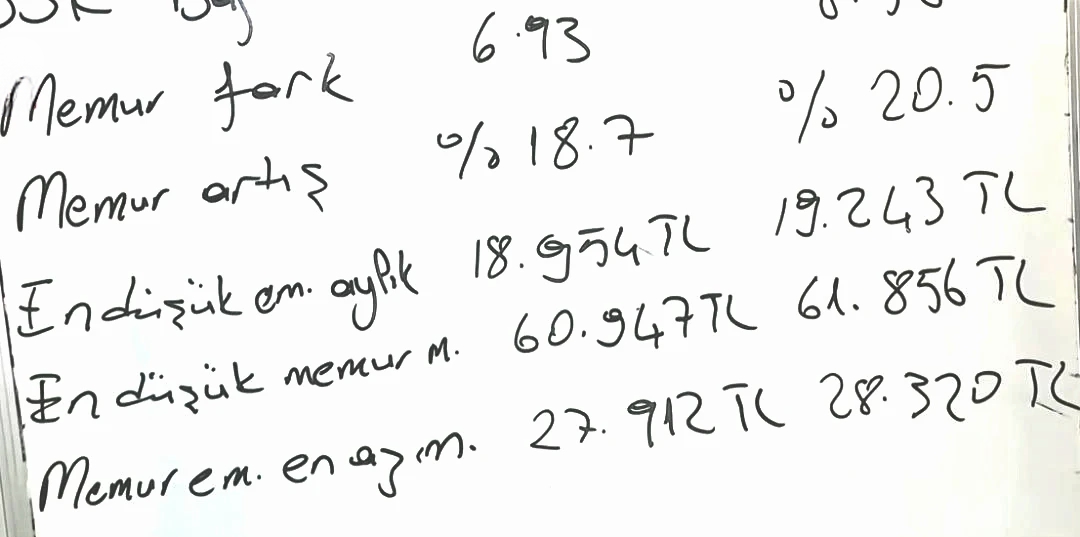 Memur fark 6.93
Memur artış % 18.7 % 20.5
En düşük em. aylık 18.954 TL 19.243 TL
En düşük memur m. 60.947 TL 61.856 TL
Memur em. en az m. 27.912 TL 28.320 TL